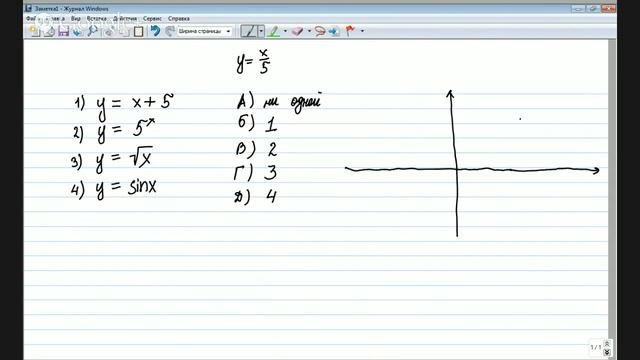 Заметка1 - Журнал Windows
Файл Правка Вид Вставка Действия Сервис Справка
Ширина страницы
y = x/5
1) y = x + 5
2) y = 5^x
3) y = √x
4) y = sinx
А) ни одной
Б) 1
В) 2
Г) 3
Д) 4
1 / 1